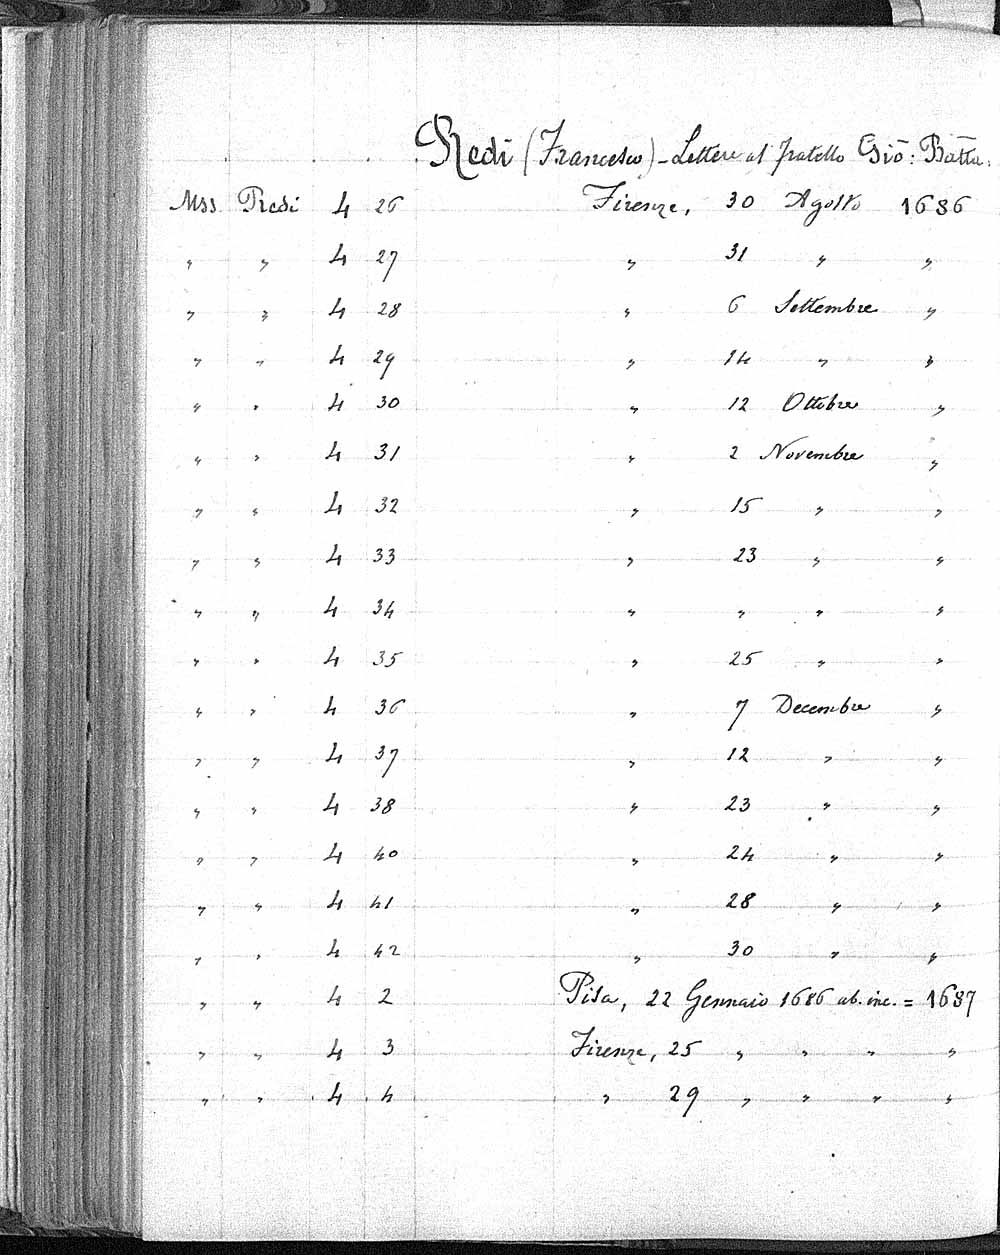 Redi (Francesco) - Lettere al fratello Giō: Batta.
Mss Redi 4 26 Firenze, 30 Agosto 1686
" " 4 27 " 31 " "
" " 4 28 " 6 Settembre "
" " 4 29 " 14 " "
" " 4 30 " 12 Ottobre "
" " 4 31 " 2 Novembre "
" " 4 32 " 15 " "
" " 4 33 " 23 " "
" " 4 34 " " " "
" " 4 35 " 25 " "
" " 4 36 " 7 Decembre "
" " 4 37 " 12 " "
" " 4 38 " 23 " "
" " 4 40 " 24 " "
" " 4 41 " 28 " "
" " 4 42 " 30 " "
" " 4 2 Pisa, 22 Gennaio 1686 ab. inc. = 1687
" " 4 3 Firenze, 25 " " " "
" " 4 4 " 29 " " " "